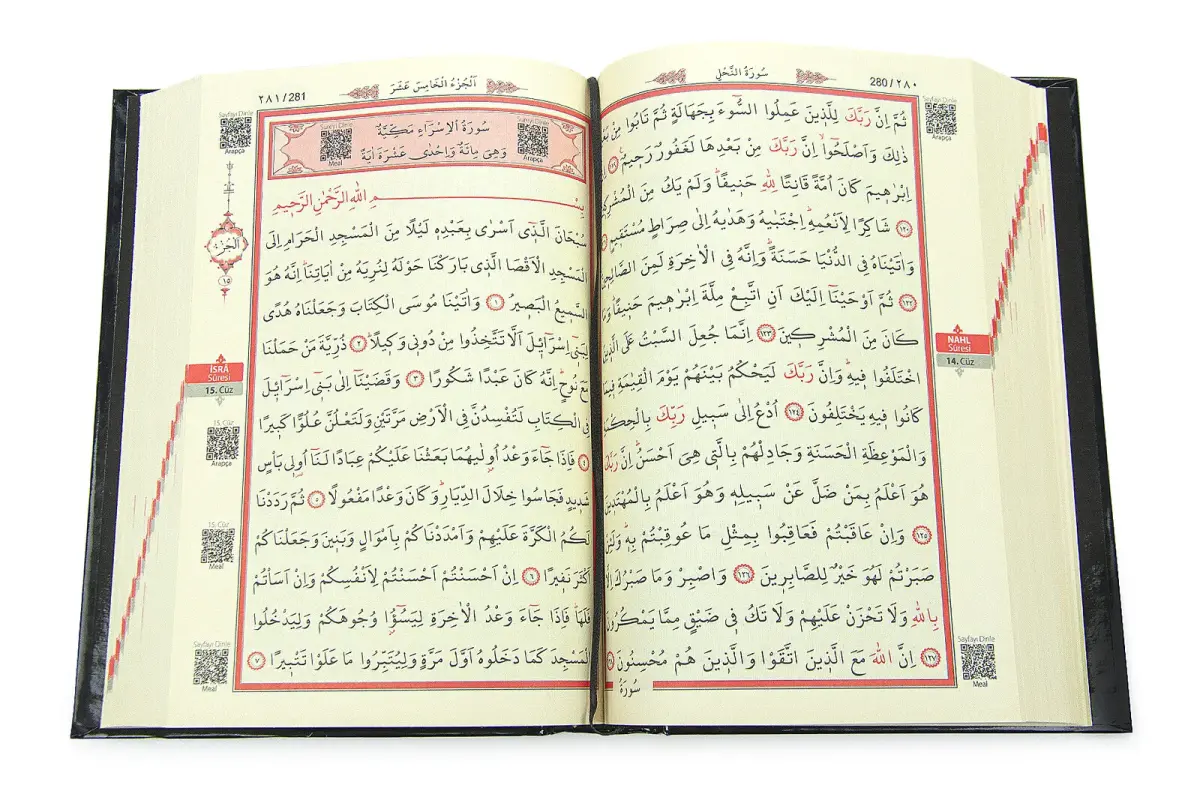 ٢٨٠/280
سُورَةُ النَّحْلِ
Sayfayı Dinle
Arapça
ثُمَّ اِنَّ رَبَّكَ لِلَّذ۪ينَ عَمِلُوا السُّٓوءَ بِجَهَالَةٍ ثُمَّ تَابُوا مِنْ
ذٰلِكَ وَاَصْلَحُٓوا اِنَّ رَبَّكَ مِنْ بَعْدِهَا لَغَفُورٌ رَح۪يمٌ ﴿١١٩﴾
اِبْرٰه۪يمَ كَانَ اُمَّةً قَانِتًا لِلّٰهِ حَن۪يفًا وَلَمْ يَكُ مِنَ
﴿١٢٠﴾ شَاكِرًا لِاَنْعُمِهِ اِجْتَبٰيهُ وَهَدٰيهُ اِلٰى صِرَاطٍ مُسْتَق۪يمٍ
وَاٰتَيْنَاهُ فِي الدُّنْيَا حَسَنَةً وَاِنَّهُ فِي الْاٰخِرَةِ لَمِنَ
﴿١٢٢﴾ ثُمَّ اَوْحَيْنَٓا اِلَيْكَ اَنِ اتَّبِعْ مِلَّةَ اِبْرٰه۪يمَ حَن۪يفًا وَمَا
كَانَ مِنَ الْمُشْرِك۪ينَ ﴿١٢٣﴾ اِنَّمَا جُعِلَ السَّبْتُ عَلَى
اخْتَلَفُوا ف۪يهِ وَاِنَّ رَبَّكَ لَيَحْكُمُ بَيْنَهُمْ يَوْمَ الْقِيٰمَةِ ف۪يمَا
كَانُوا ف۪يهِ يَخْتَلِفُونَ ﴿١٢٤﴾ اُدْعُ اِلٰى سَب۪يلِ رَبِّكَ
وَالْمَوْعِظَةِ الْحَسَنَةِ وَجَادِلْهُمْ بِالَّت۪ي هِيَ اَحْسَنُ اِنَّ رَبَّكَ
هُوَ اَعْلَمُ بِمَنْ ضَلَّ عَنْ سَب۪يلِه۪ وَهُوَ اَعْلَمُ بِالْمُهْتَد۪ينَ
﴿١٢٥﴾ وَاِنْ عَاقَبْتُمْ فَعَاقِبُوا بِمِثْلِ مَا عُوقِبْتُمْ بِه۪ وَلَئِنْ
صَبَرْتُمْ لَهُوَ خَيْرٌ لِلصَّابِر۪ينَ ﴿١٢٦﴾ وَاصْبِرْ وَمَا صَبْرُكَ
بِاللّٰهِ وَلَا تَحْزَنْ عَلَيْهِمْ وَلَا تَكُ ف۪ي ضَيْقٍ مِمَّا يَمْكُرُونَ
﴿١٢٧﴾ اِنَّ اللّٰهَ مَعَ الَّذ۪ينَ اتَّقَوْا وَالَّذ۪ينَ هُمْ مُحْسِنُونَ
سُورَةُ
NAHL
Sûresi
14. Cüz
Sayfayı Dinle
Meal
اَلْجُزْءُ الْخَامِسَ عَشَرَ
٢٨١/281
Sayfayı Dinle
Arapça
سُورَةُ الْاِسْرَاءِ مَكِّيَّةٌ
وَهِيَ مِائَةٌ وَاِحْدٰى عَشْرَةَ اٰيَةً
Sureyi Dinle
Arapça
Sureyi Dinle
Meal
بِسْمِ اللّٰهِ الرَّحْمٰنِ الرَّح۪يمِ
سُبْحَانَ الَّذ۪ٓي اَسْرٰى بِعَبْدِه۪ لَيْلًا مِنَ الْمَسْجِدِ الْحَرَامِ اِلَى
الْمَسْجِدِ الْاَقْصَا الَّذ۪ي بَارَكْنَا حَوْلَهُ لِنُرِيَهُ مِنْ اٰيَاتِنَا اِنَّهُ هُوَ
السَّم۪يعُ الْبَص۪يرُ ﴿١﴾ وَاٰتَيْنَا مُوسَى الْكِتَابَ وَجَعَلْنَاهُ هُدًى
لِبَن۪ٓي اِسْرَٓائ۪لَ اَلَّا تَتَّخِذُوا مِنْ دُون۪ي وَك۪يلًا ﴿٢﴾ ذُرِّيَّةَ مَنْ حَمَلْنَا
مَعَ نُوحٍ اِنَّهُ كَانَ عَبْدًا شَكُورًا ﴿٣﴾ وَقَضَيْنَٓا اِلٰى بَن۪ٓي اِسْرَٓائ۪لَ
فِي الْكِتَابِ لَتُفْسِدُنَّ فِي الْاَرْضِ مَرَّتَيْنِ وَلَتَعْلُنَّ عُلُوًّا كَب۪يرًا
﴿٤﴾ فَاِذَا جَٓاءَ وَعْدُ اُو۫لٰيهُمَا بَعَثْنَا عَلَيْكُمْ عِبَادًا لَنَٓا اُو۬ل۪ي بَأْسٍ
شَد۪يدٍ فَجَاسُوا خِلَالَ الدِّيَارِ وَكَانَ وَعْدًا مَفْعُولًا ﴿٥﴾ ثُمَّ رَدَدْنَا
لَكُمُ الْكَرَّةَ عَلَيْهِمْ وَاَمْدَدْنَاكُمْ بِاَمْوَالٍ وَبَن۪ينَ وَجَعَلْنَاكُمْ
اَكْثَرَ نَف۪يرًا ﴿٦﴾ اِنْ اَحْسَنْتُمْ اَحْسَنْتُمْ لِاَنْفُسِكُمْ وَاِنْ اَسَأْتُمْ
فَلَهَا فَاِذَا جَٓاءَ وَعْدُ الْاٰخِرَةِ لِيَسُٓوؤُ۫ا وُجُوهَكُمْ وَلِيَدْخُلُوا
الْمَسْجِدَ كَمَا دَخَلُوهُ اَوَّلَ مَرَّةٍ وَلِيُتَبِّرُوا مَا عَلَوْا تَتْب۪يرًا ﴿٧﴾
اَلْجُزْءُ
١٥
İSRÂ
Sûresi
15. Cüz
15. Cüz
Arapça
15. Cüz
Meal
Sayfayı Dinle
Meal